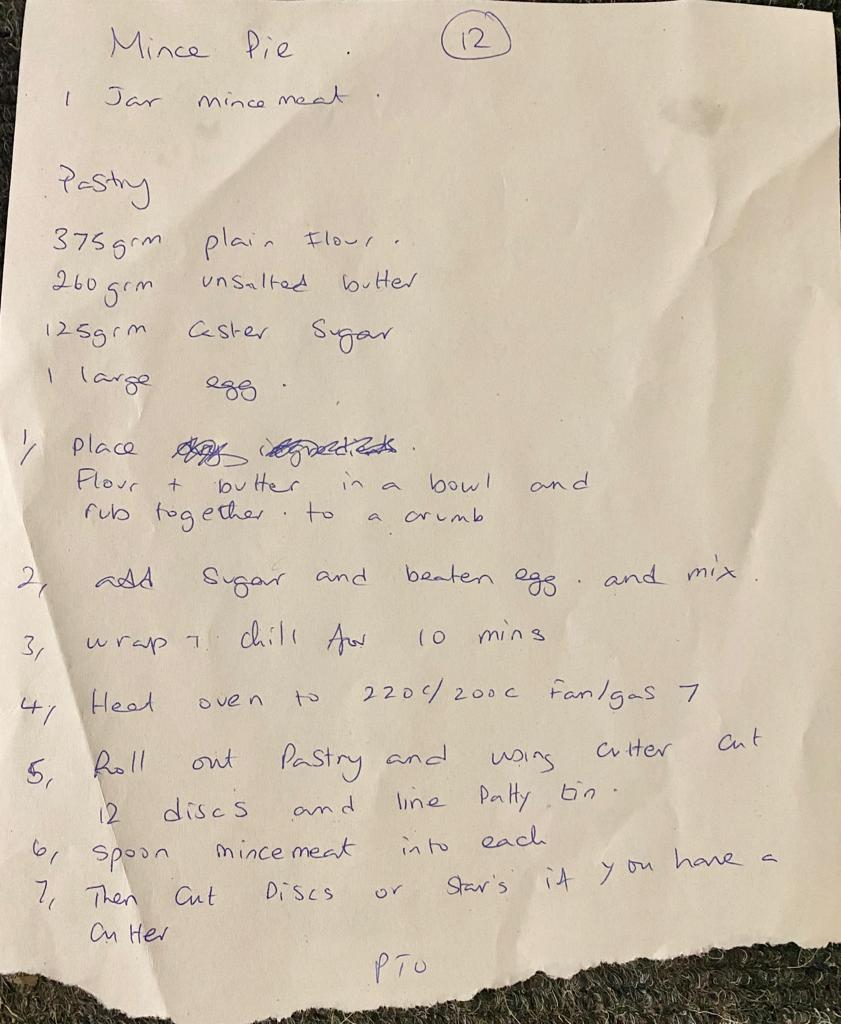 Mince Pie . 12
1 Jar mince meat .
Pastry
375grm plain Flour .
260grm unsalted butter
125grm Caster Sugar
1 large egg .
1, Place
Flour + butter in a bowl and
rub together . to a crumb
2, add Sugar and beaten egg . and mix .
3, wrap + chill for 10 mins
4, Heat oven to 220c/200c Fan/gas 7
5, Roll out Pastry and using cutter cut
12 discs and line Patty tin .
6, spoon mince meat into each
7, Then Cut Discs or Star's if you have a
Cutter
PTO